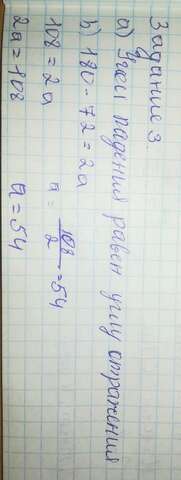 Задание 3.
а) Угол падения равен углу отражения
b) 180 - 72 = 2a
108 = 2a a = 108/2 = 54
2a = 108 a = 54